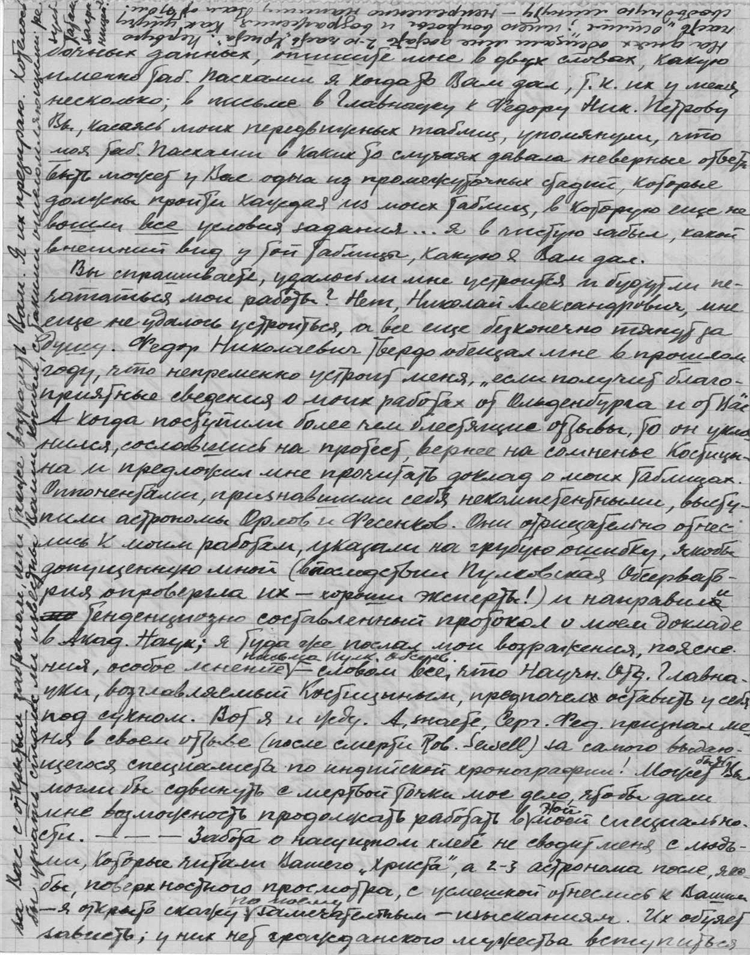 бочных данных, опишите мне в двух словах, какую
именно таб. Пасхалии я когда то Вам дал, т.к. их у меня
несколько; в письме в Главнауку к Федору Ник. Петрову
Вы, касаясь моих передвижных таблиц, упомянули, что
моя таб. Пасхалии в каких то случаях давала неверные ответы
Быть может у Вас одна из промежуточных стадий, которые
должны пройти каждая из моих таблиц, в которую еще не
вошли все условия задания... я в чистую забыл, какой
внешний вид у той таблицы, какую я Вам дал.
Вы спрашиваете, удалось ли мне устроиться и будут ли пе-
чататься мои работы? Нет, Николай Александрович, мне
еще не удалось устроиться, а все еще бесконечно тянут за
душу. Федор Николаевич твердо обещал мне в прошлом
году, что непременно устроит меня, „если получит благо-
приятные сведения о моих работах от Ольденбурга и от Вас
А когда поступили более чем блестящие отзывы, то он укло-
нился, сославшись на протест, вернее на сомненье Костицы-
на и предложил мне прочитать доклад о моих таблицах.
Оппонентами, признавшими себя некомпетентными, высту-
пили астрономы Орлов и Фесенков. Они отрицательно отнес-
лись к моим работам, указали на грубую ошибку, якобы
допущенную мной (впоследствии Пулковская Обсервато-
рия опровергла их — хороши эксперты!) и направили
тенденциозно составленный протокол о моем докладе
в Акад. Наук; я туда же послал мои возражения, поясне-
ния, особое мнение письма Пулк. Обсерв. — словом все, что Научн. Отд. Главна-
уки, возглавляемый Костицыным, предпочел оставить у себя
под сукном. Вот я и жду. А, знаете, Серг. Фед. признал ме-
ня в своем отзыве (после смерти Rob. Sewell) за самого выдаю-
щегося специалиста по индийской хронографии! Может быть Вы
могли бы сдвинуть с мертвой точки мое дело, чтобы дали
мне возможность продолжать работать в этой специально-
сти. — — — — Забота о насущном хлебе не сводит меня с людь-
ми, которые читали Вашего „Христа", а 2-3 астронома после, яко-
бы, поверхностного просмотра, с усмешкой отнеслись к Вашим
— я открыто скажу по моему замечательным — изысканиям. Их обуяет
зависть; у них нет гражданского мужества вступиться
за Вас с открытым забралом, или также возразить Вам. Я их презираю. Хотелось
бы узнать